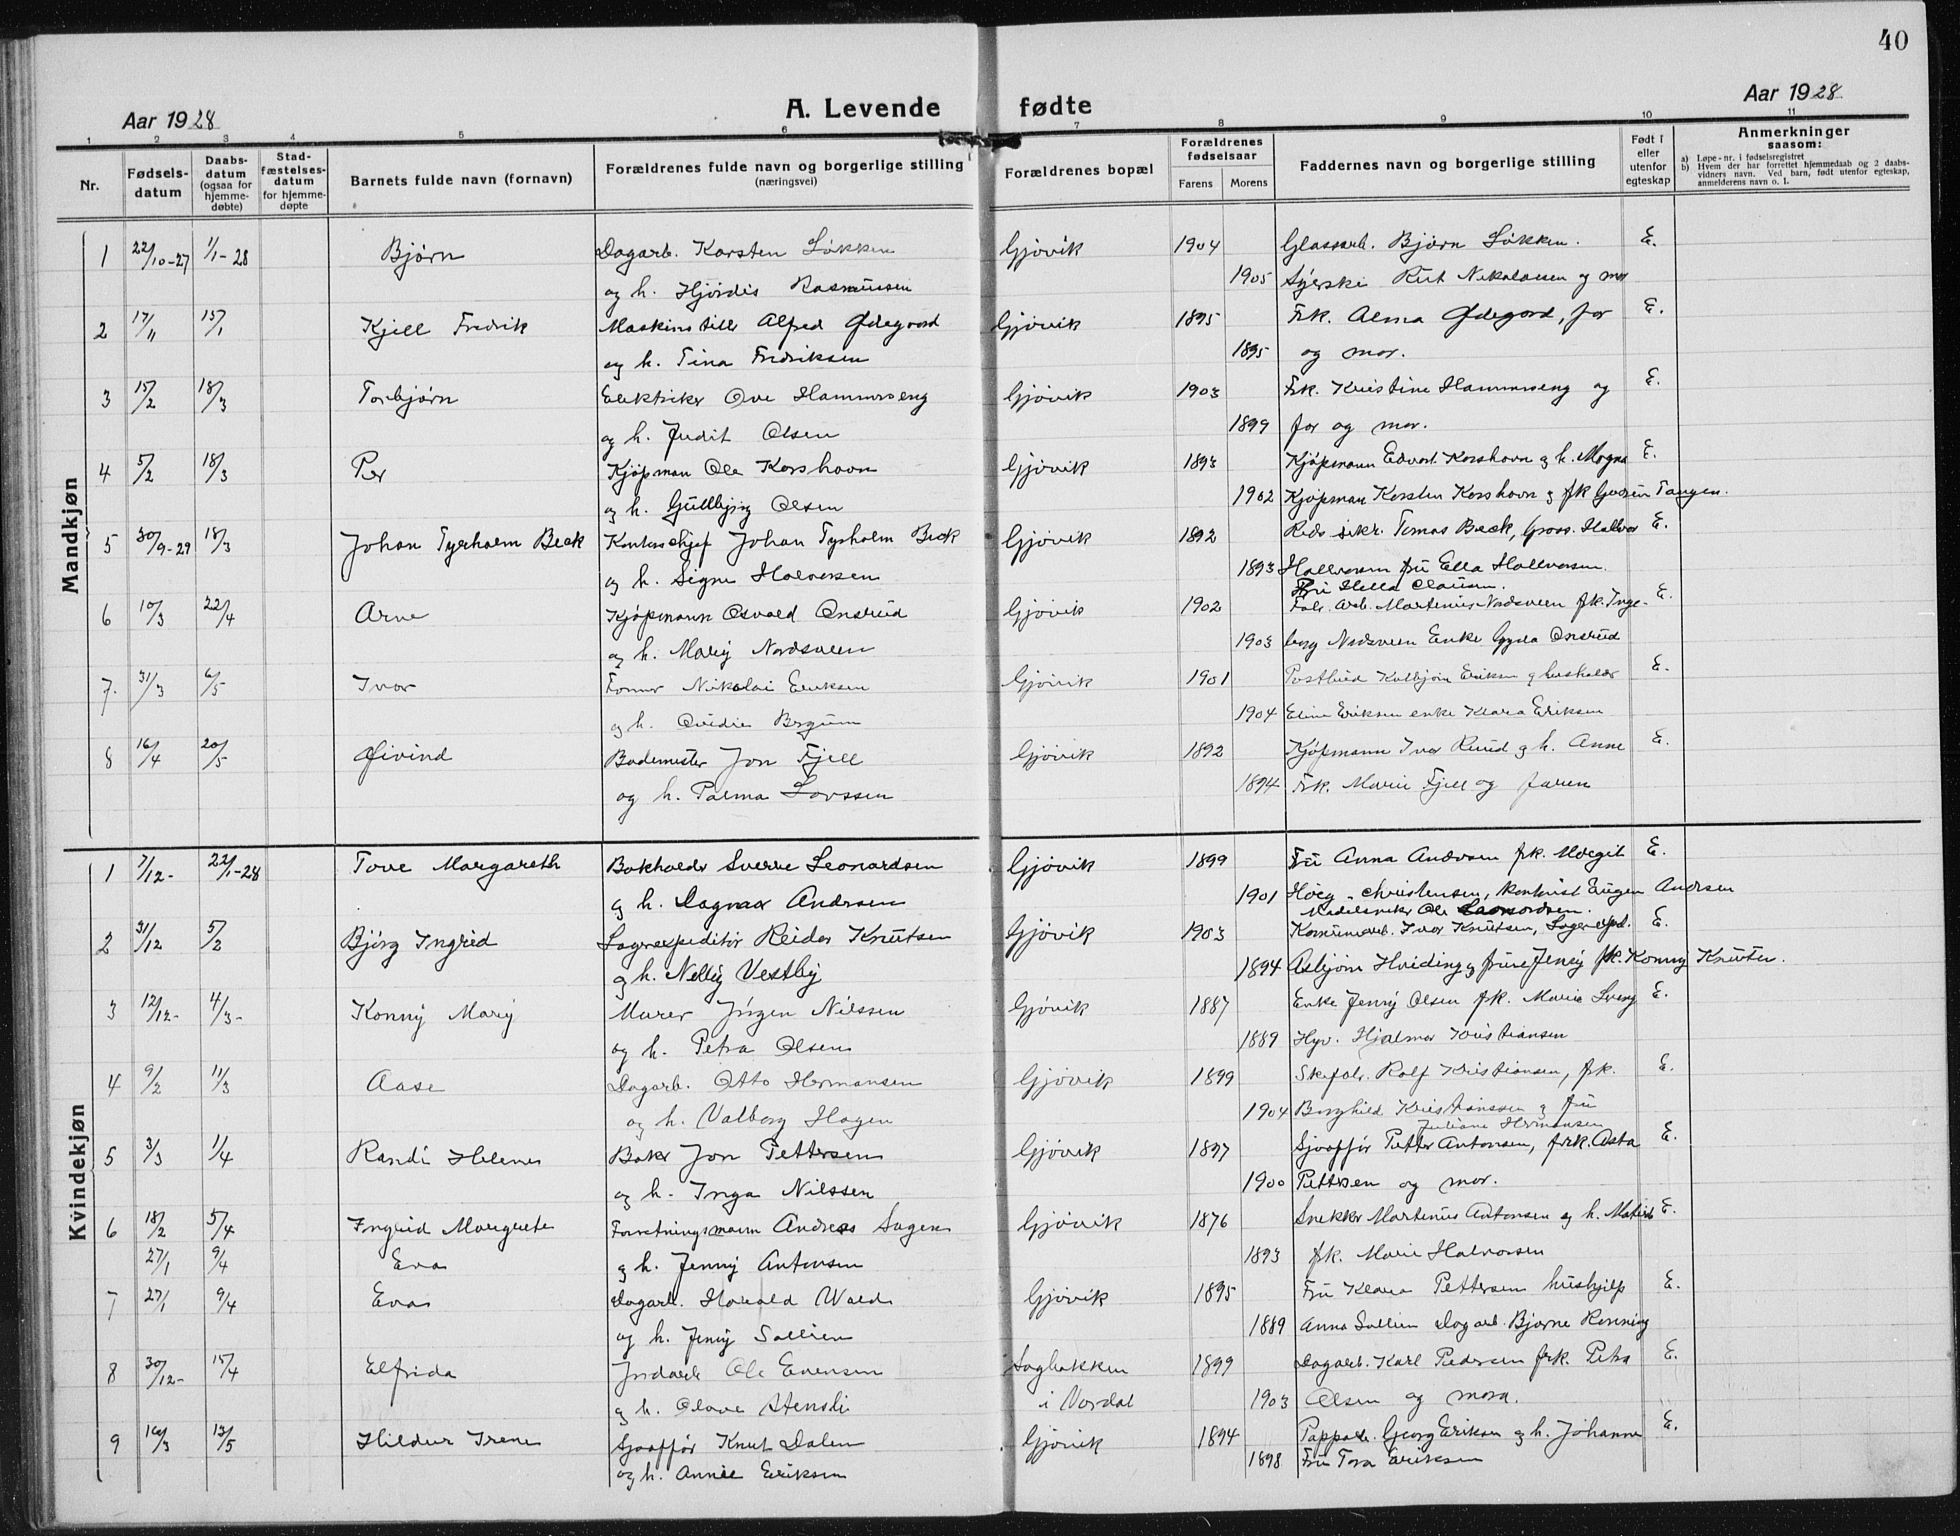 40
Aar 1928 A. Levende fødte Aar 1928
1 2 3 4 5 6 7 8 9 10 11
Nr. Fødsels-datum Daabs-datum (ogsaa for hjemme-døbte) Stad-fæstelses-datum for hjemme-døpte Barnets fulde navn (fornavn) Forældrenes fulde navn og borgerlige stilling (næringsvei) Forældrenes bopæl Forældrenes fødselsaar Farens Morens Faddernes navn og borgerlige stilling Født i eller utenfor egteskap Anmerkninger saasom:
a) Løpe-nr. i fødselsregistret
b) Hvem der har forrettet hjemmedaab og 2 daabs-vidners navn. Ved barn, født utenfor egteskap, anmelderens navn o. l.
Mandkjøn
1 22/10-27 1/1-28 Bjørn Dagarb. Karsten Løkken Gjøvik 1904 Glassarb. Bjørn Løkken. E.
og h. Hjørdis Rasmussen 1905 Syerske Rut Nikolaisen og mor
2 17/11 15/1 Kjell Fredrik Maskinstill. Alfred Ødegaard Gjøvik 1895 Frk. Alma Ødegard, far E.
og h. Tina Fredriksen 1895 og mor.
3 15/2 18/3 Torbjørn Elektriker Ove Hammerseng Gjøvik 1903 Frk. Kristine Hammerseng og E.
og h. Judit Olsen 1899 far og mor.
4 5/2 18/3 Per Kjøpman Ole Korshavn Gjøvik 1893 Kjøpmann Edvart Korshavn og h. Magna E.
og h. Gullbjørg Olsen 1902 Kjøpman Karsten Korshavn og frk Gudrun Tangen.
5 30/9-27 18/3 Johan Tyrholm Beck Kontorchef Johan Tyrholm Beck Gjøvik 1892 Reds sekr. Tomas Beck, Gross. Halvor E.
og h. Signe Halvorsen 1893 Hallvorsen fru Ella Hallvorsen.
Fru Hella Clausen.
6 10/3 22/4 Arne Kjøpmann Osvald Onsrud Gjøvik 1902 Fabr. Arb. Martenius Nordsveen frk. Inge- E.
og h. Mary Nordsveen 1903 borg Nordsveen Enke Gyda Onsrud
7. 31/3 6/5 Ivar Former Nikolai Eriksen Gjøvik 1901 Postbud Kolbjørn Eriksen og E.
og h. Ovidie Bergum 1904 Eline Eriksen enke Klara Eriksen
8 16/4 20/5 Øivind Bademester Jon Fjell Gjøvik 1892 Kjøpmann Ivar Ruud og h. Anne E.
og h. Palma Larssen 1894 Frk. Marie Fjell og faren
Kvindekjøn
1 7/12- 22/1-28 Tove Margareth Bokholder Sverre Leonardsen Gjøvik 1899 Fru Anna Andersen frk. Margit E.
og h. Dagmar Andersen 1901 Høeg-Christensen, kontorist Eugen Andersen
Ole Leonardsen.
2 31/12 5/2 Bjørg Ingrid Lagerexpeditør Reidar Knutsen Gjøvik 1903 Ivar Knutsen, Lagerexpd. E.
og h. Nelly Vestby 1894 Asbjørn Hviding og frue Jenny frk. Konny Knutsen.
3 12/12- 4/3- Konny Mary Murer Jørgen Nilssen Gjøvik 1887 Enke Jenny Olsen frk. Marie E.
og h. Petra Olsen 1889 Hjalmar Kristiansen
4 9/2 11/3 Aase Dagarb. Otto Hermansen Gjøvik 1899 Skofabr. Rolf Kristiansen, frk. E.
og h. Valborg Hagen 1904 Borghild Kristianssen og fru
Juliane Hermansen
5 3/3 1/4 Randi Helene Baker Jon Pettersen Gjøvik 1897 Sjaaffør Petter Antonsen, frk. Asta E.
og h. Inga Nilssen 1900 Pettersen og mor.
6 18/2 5/4 Ingrid Margrete Forretningsmann Andreas Sagen Gjøvik 1876 Snekker Martenius Antonsen og h. E.
27/1 9/4 Eva og h. Jenny Antonsen 1893 frk. Marie Halvorsen
7 27/1 9/4 Eva Dagarb. Harald Wald Gjøvik 1895 Fru Klara Pettersen hushjelp E.
og h. Jenny Sollien 1889 Anna Sollien Dagarb. Bjarne Rønning
8 30/12- 15/4 Elfrida Jordarb Ole Evensen Sagbakken 1899 Dagarb. Karl Pedersen frk. Petra E.
og h. Olave Stensli i Vardal 1903 Olsen og mora.
9 16/3 13/5 Hildur Irene Sjaaffør Knut Dalen Gjøvik 1894 Georg Eriksen og h. Johanne E.
og h. Annie Eriksen 1898 Fru Tora Eriksen